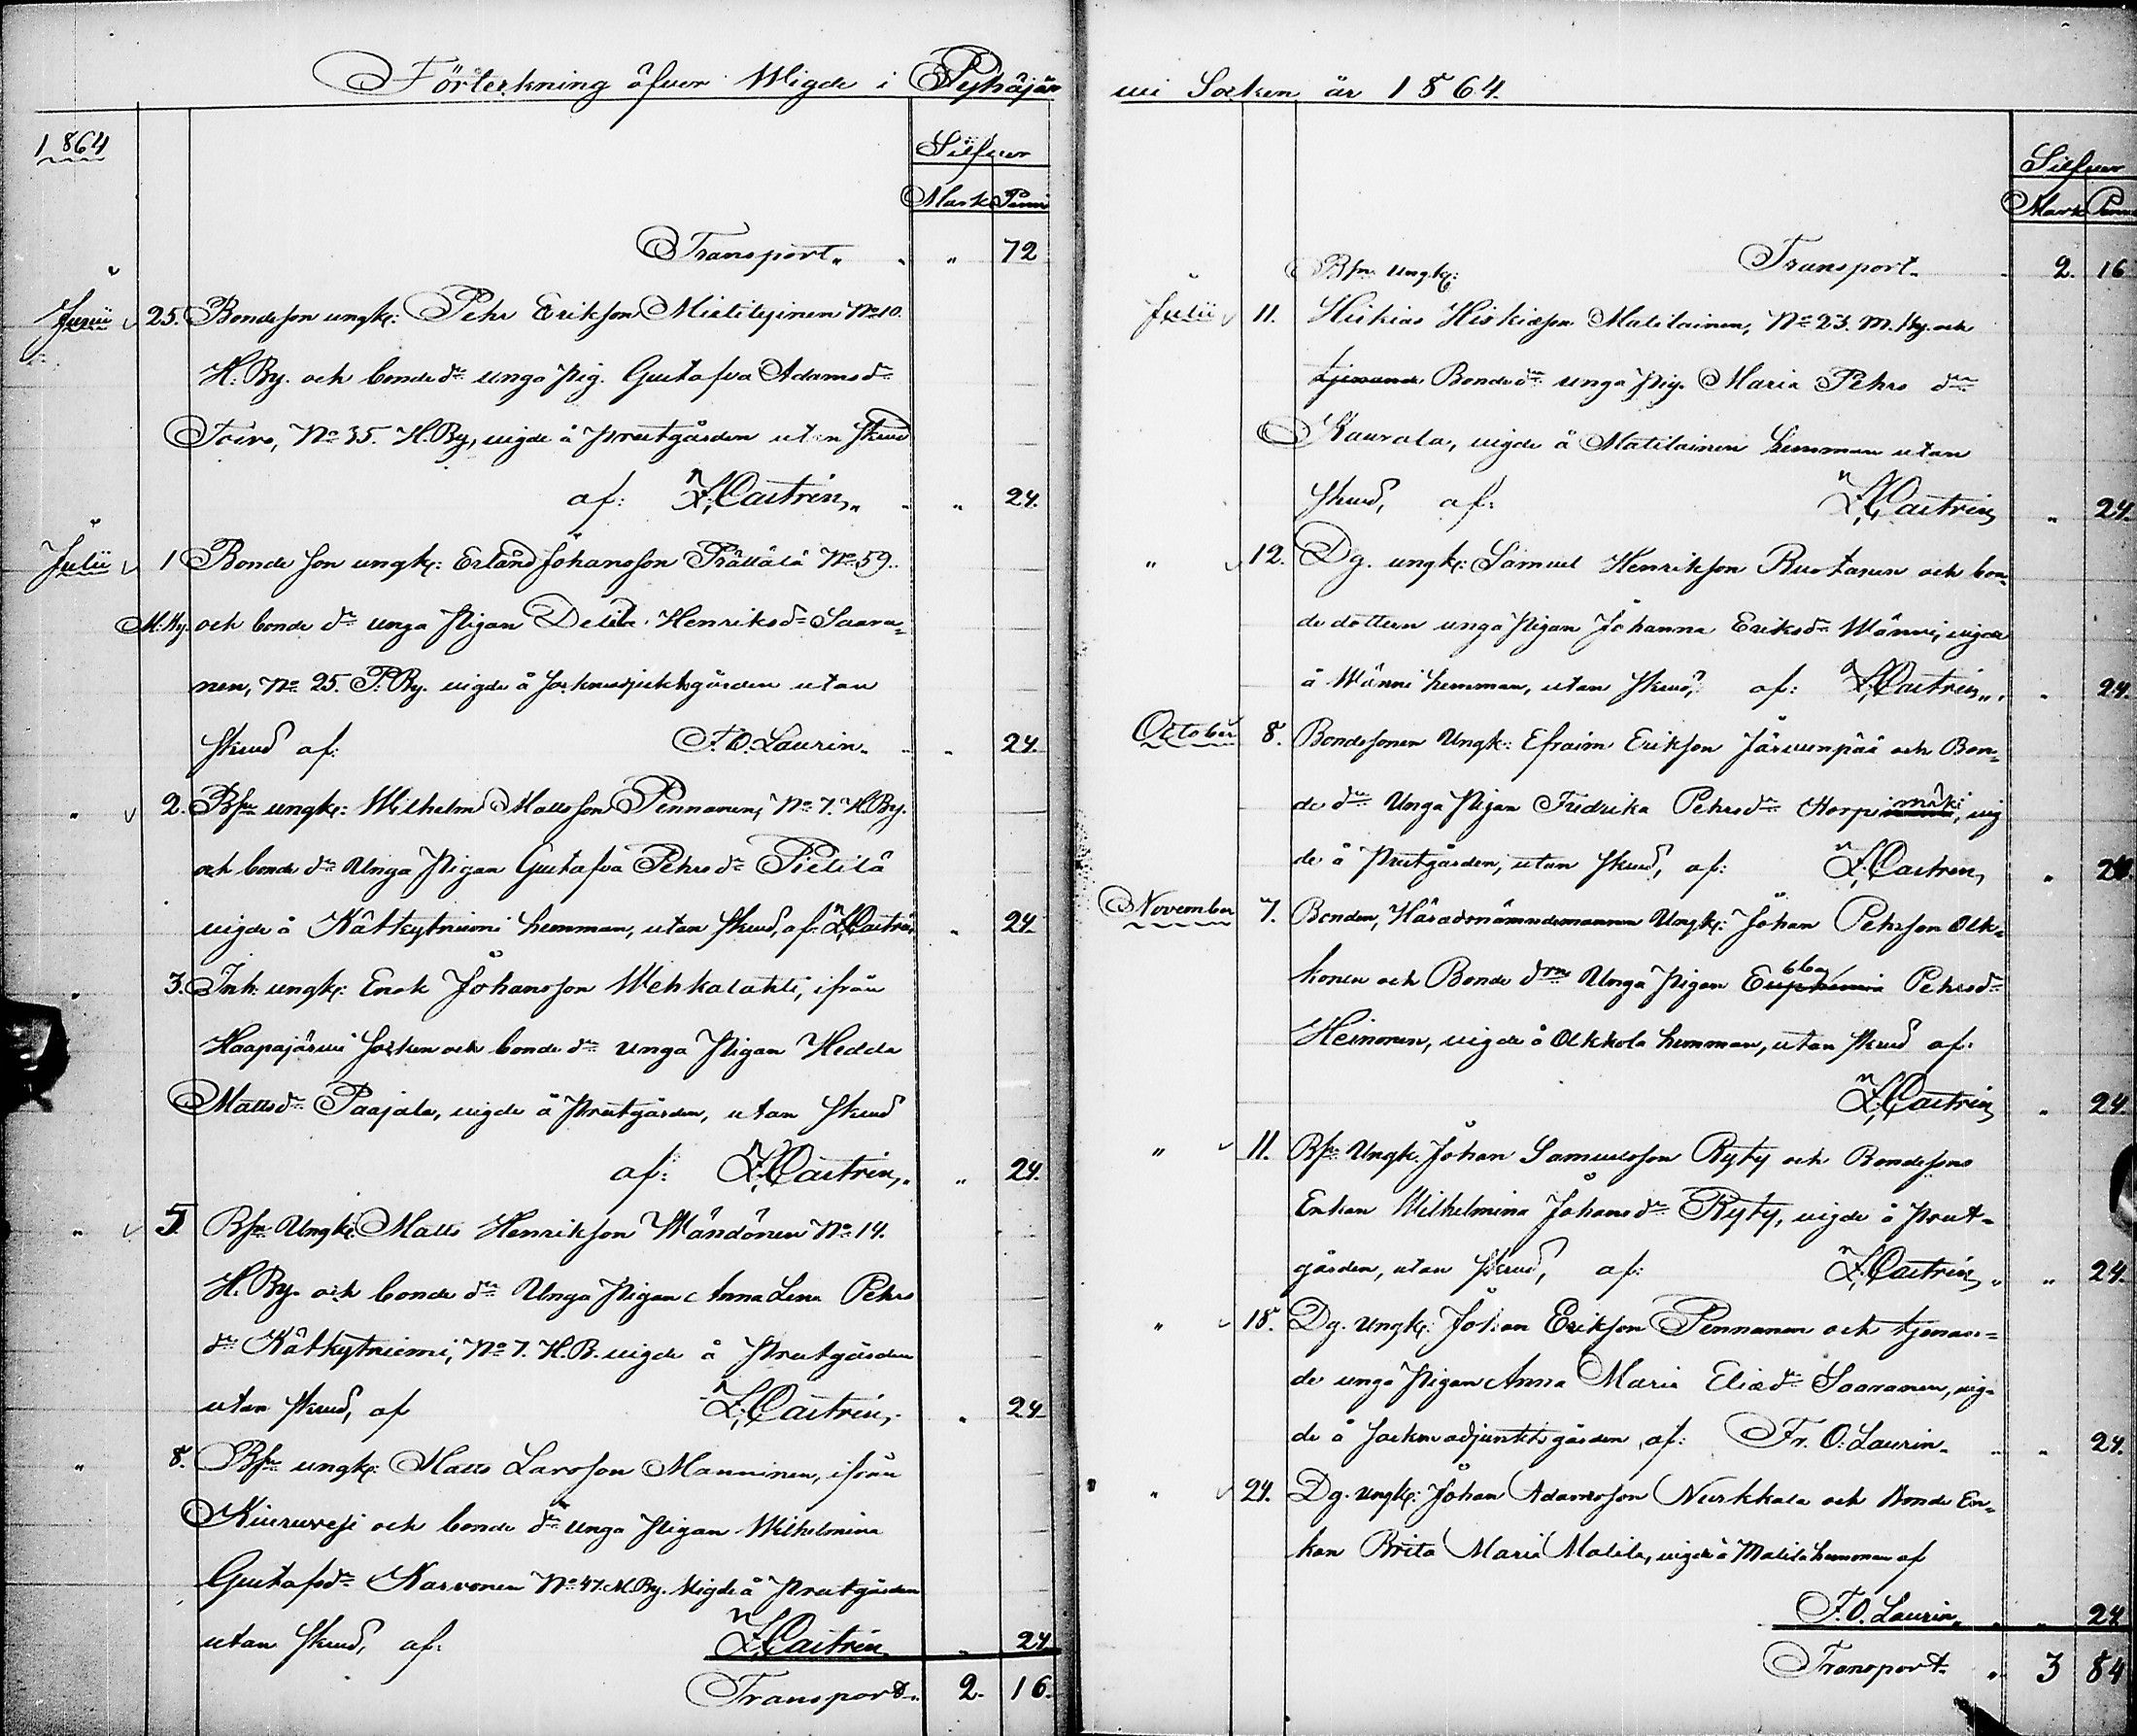 Förteckning öfver Wigde i Pyhäjär
1864
Silfver
Mark Penni
Transport „ „ 72
Junii 25. Bondeson ungk: Pehr Erikson Mieliteginen No 10.
H. By. och bonde dr unga pig. Gustafva Adamsdr
Toivo, No 35. H. By, vigde å prestgården utan skrud
af: Z. Castrén „ „ 24.
Julii 1 Bonde son ungk: Erland Johansson Prällälä No 59.
M. By. och bonde dr unga pigan Delila Henriksdr Saara-
nen, No 25. P. By. vigde å sockneadjunktsgården utan
skrud af: F. O. Laurin. „ 24.
„ 2. Bsn ungk: Wilhelm Matsson Pennanen, No 7. H. By.
och bonde dr Unga pigan Gustafva Pehrsdr Pietilä
vigde å Kätkytniemi hemman, utan skrud, af Z. Castrén „ 24.
„ 3. Inh. ungk: Enok Johansson Wehkalahti, ifrån
Haapajärvi socken och bonde dr unga pigan Hedda
Mattsdr Paajala, vigde å prestgården, utan skrud
af: Z. Castrén, „ „ 24.
„ 5. Bsn Ungk: Matts Henrikson Wändönen No 14.
H. By. och bonde dr Unga pigan Anna Lena Pehrs
dr Kätkytniemi, No 7. H. B. vigde å prestgården
utan skrud, af Z. Castrén, „ 24.
„ 8. Bsn ungk: Matts Larsson Manninen, ifrån
Kiuruvesi och bonde dr unga pigan Wilhelmina
Gustafsdr Karvonen No 47. M. By. Vigde å prestgården
utan skrud, af: Z. Castrén „ 24
Transport „ 2. 16.
vi Socken år 1864.
Silfver
Mark Penni
Transport „ 2. 16
Bsn ungk:
Julii 11. Hiskias Hiskiasson Matilainen, No 23. M. By. och
tjenande Bonde dr unga pig. Maria Pehrs dr
Kaurala, vigde å Matilainen hemman utan
skrud, af: Z. Castrén „ 24.
„ 12. Dg. ungk: Samuel Henrikson Ruotanen och bon-
de dottern unga pigan Johanna Eriksdr Wänni, vigde
å Wänni hemman, utan skrud, af: Z. Castrén „ „ 24.
October 8. Bondesonen Ungk: Efraim Erikson Järvenpää och Bon-
de dr Unga pigan Fredrika Pehrsdr Horpimäki, vig
de å prestgården, utan skrud, af: Z. Castrén, „ 24.
November 7. Bonden, Häradsnämndemannen Ungk: Johan Pehrson Olk-
konen och Bonde drn Unga pigan Ebba Pehrsdr
Heinonen, vigde å Olkkola hemman, utan skrud af:
Z. Castrén „ 24.
„ 11. Bsn Ungk. Johan Samuelsson Ryty och Bondesons
Enkan Wilhelmina Johansdr Ryty, vigde å prest-
gården, utan skrud, af: Z. Castrén „ „ 24.
„ 18. Dg. Ungk: Johan Erikson Pennanen och tjenan-
de unga pigan Anna Maria Eliædr Saaranen, vig-
de å sockneadjunktsgården, af: Fr. O. Laurin. „ 24.
„ 24. Dg. ungk: Johan Adamsson Nurkkala och Bonde En-
kan Brita Maria Matila, vigde å Matila hemman af
F. O. Laurin „ „ 24
Transport „ 3 84